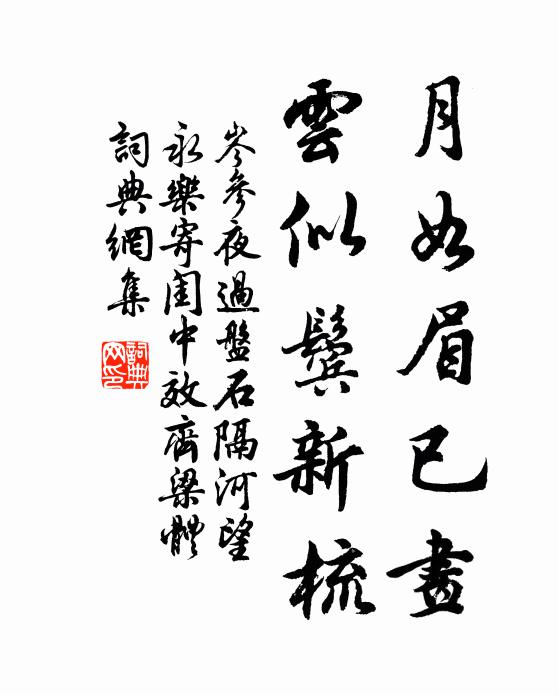 月如眉已畫
雲似鬢新梳
岑參夜過盤石隔河望
永樂寄閨中效齊梁體
詞典網集
詞典
網印